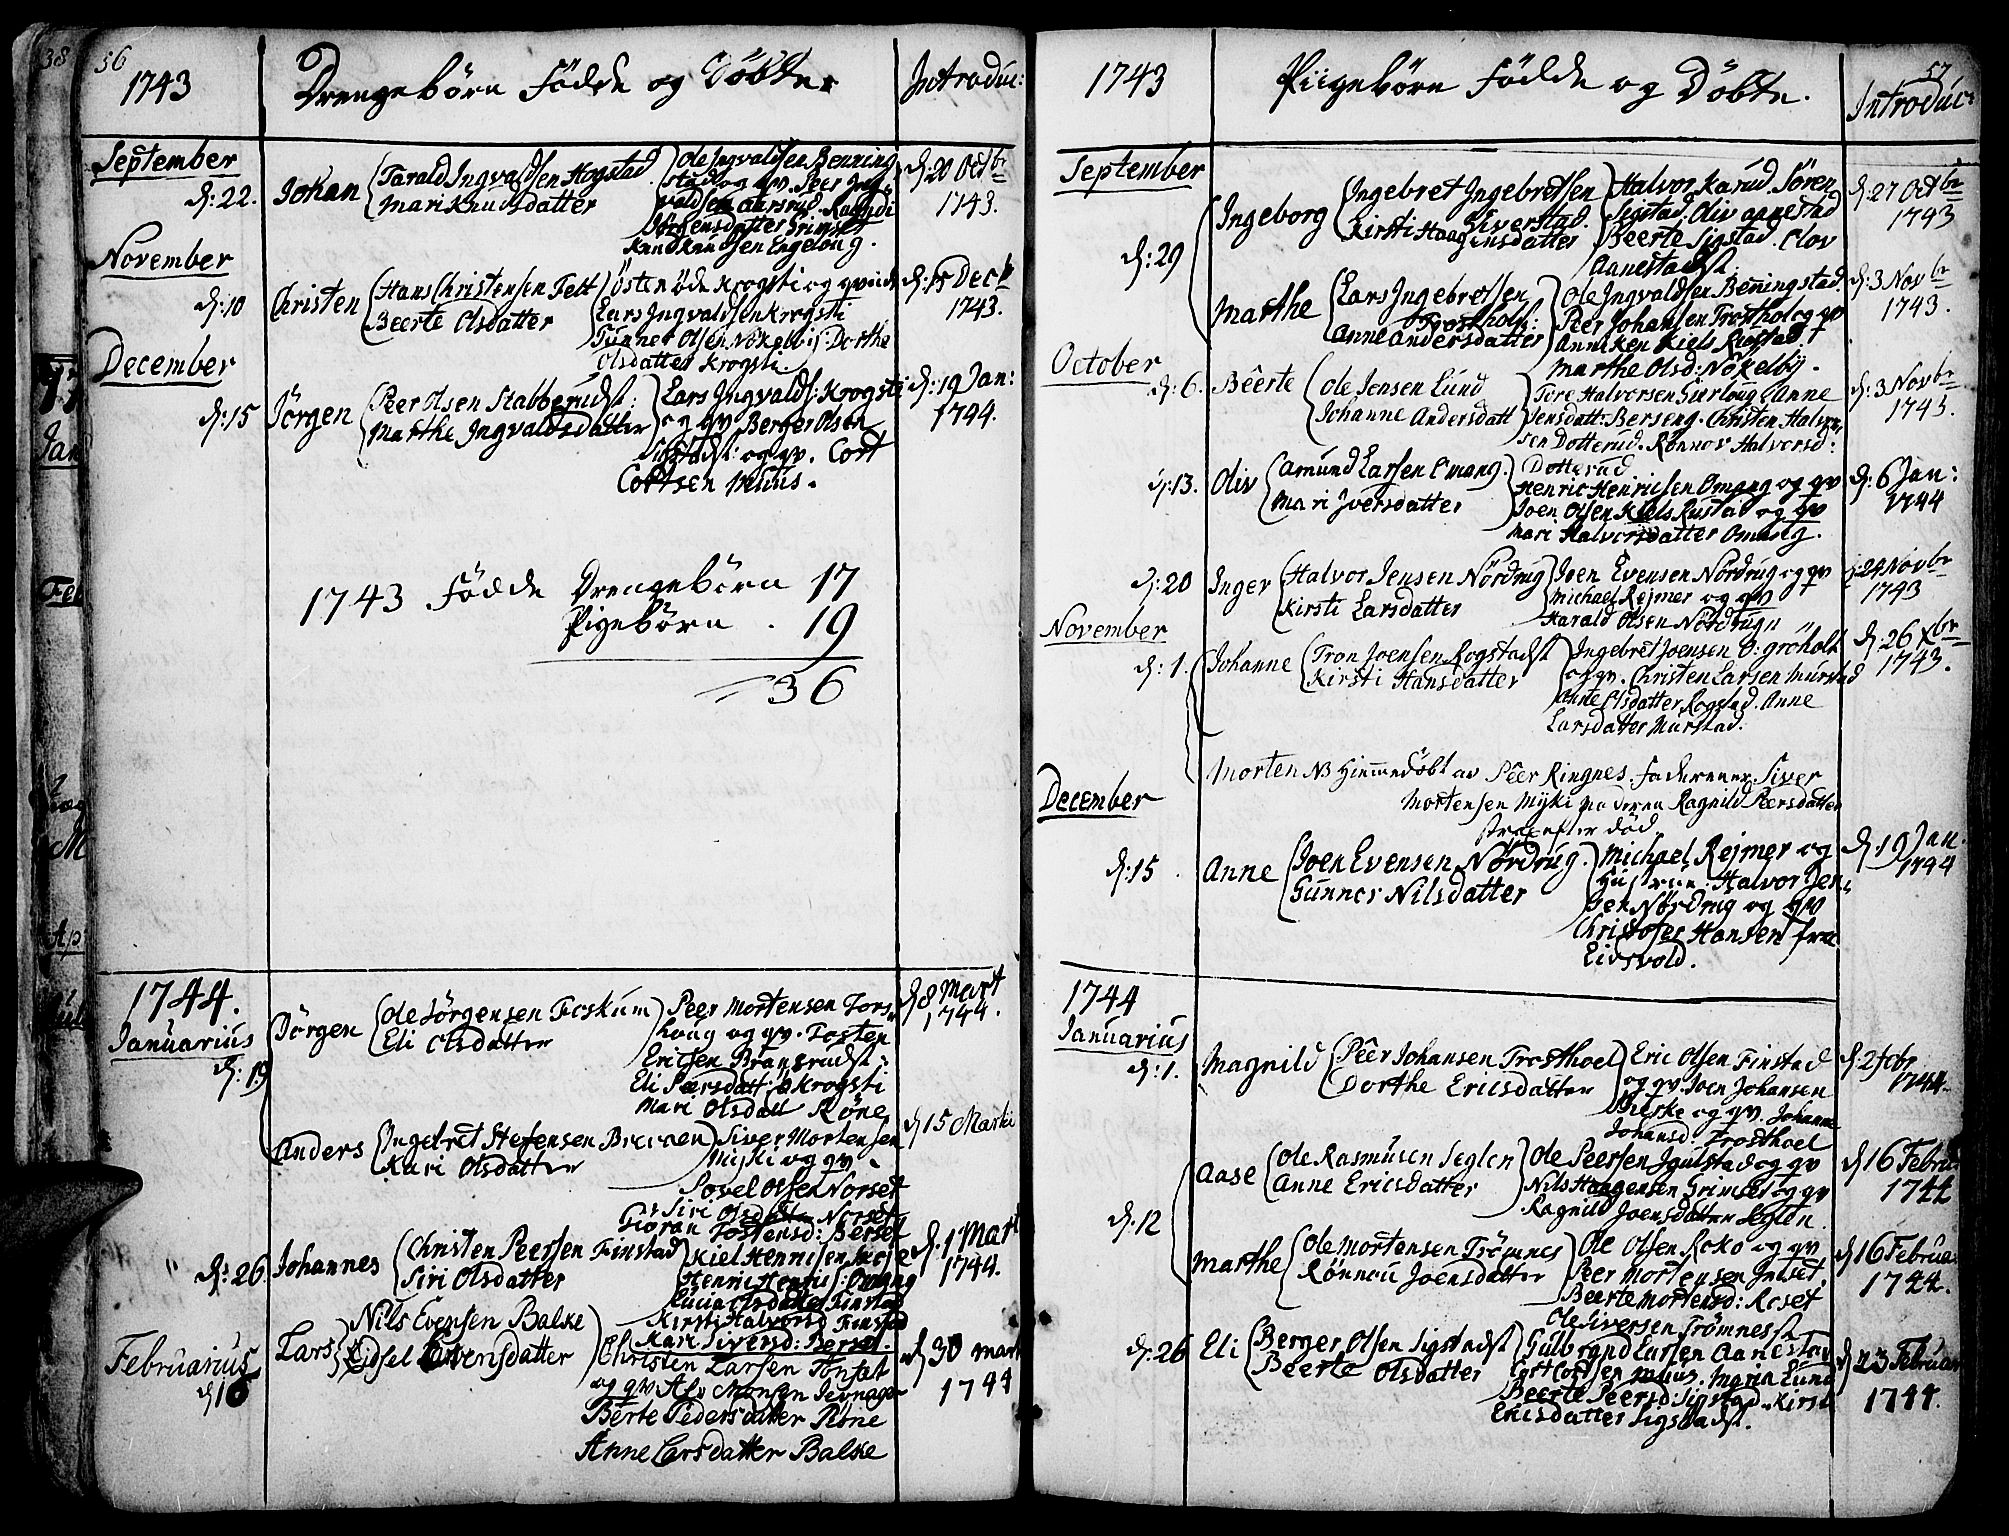 38
56
1743
Drengebørn Födde og Döbte.
Introduc:
September
d: 22.
Johan
Tarald Ingvaldsen Hogstad
Mari Knudsdatter
Ole Ingvaldsen Benning
stad og qv. Peer Ing
valdsen Aarsrud. Ragndi
Jörgensdatter Grimset
Knud Knudsen Engeloug.
d: 20 Octbr
1743.
November
d: 10
Christen
Hans Christensen Fett
Beerte Olsdatter
Östen öde Krogsti og qvinde
Lars Ingvaldsen Krogsti
Gunner Olsen Nökelbÿ. Dorthe
Olsdatter Krogsti.
d: 15 Decb
1743.
December
d: 15
Jörgen
Peer Olsen Stabberudst:
Marthe Ingvaldsdatter
Lars Ingvalds: Krogsti
og qv Berger Olsen
Sigstadst: og qv. Cort
Cortsen Muus.
d: 19 Jan:
1744.
1743 Födde Drengebörn 17
Pigebörn . 19
36
1744.
Januarius
d: 19
Jörgen
Ole Jörgensen Foskum
Eli Olsdatter
Peer Mortensen Fors
houg og qv. Tosten
Ericsen Branerudst:
Eli Peersdatt Krogsti
Mari Olsdatt Röne
d 8 Mart
1744.
Anders
Ingebret Stefensen
Kari Olsdatter
Siver Mortensen
Myki og qv
Povel Olsen Norset
Siri Olsdatter Norset
d 15 Marti
d: 26
Johannes
Christen Peersen Finstad
Siri Olsdatter
Göran Tostensd: Berset
Kiel Henricsen
Henric Henrics: Omang
Lucia Olsdatter Finstad
Kirsti Halvorsd Finstad
Kari Siversd: Berset.
d: 1 Mart
1744.
Februarius
d 16
Lars
Nils Evensen Balke
Eidsel Evensdatter
Christen Larsen Tonset
og qv. Monsen
Berte Pedersdatter Röne
Anne Larsdatter Balke
d 30 mart
1744
57
1743
Piigebörn Födde og Döbte.
Introduc:
September
d: 29
Ingeborg
Ingebret Ingebretsen
Siverstad.
Kirsti Haagensdatter
Halvor Karud. Sören
Sigstad. Oliv Aanestad
Beerte Sigstad. Olov
Aanestadst
d: 27 Octbr
1743
Marthe
Lars Ingebretsen
Trostholst:
Anne Andersdatter
Ole Ingvaldsen Benningstad
Peer Johansen Trosthol og qv
Anniken Kiels Rustad.
Marthe Olsd: Nökelby.
d: 3 Novbr
1743.
October
d: 6.
Beerte
Ole Jensen Lund
Johanne Andersdatt
Tore Halvorsen Giurloug. Anne
Jensdatt: Berseng. Christen Halvor
sen Dotterud. Rönnov Halvorsd:
Dotterud
d: 3 Novbr
1743.
d: 13.
Oliv
Amund Larsen Omang.
Mari Iversdatter
Henric Henricsen Omang og qv
Joen Olsen Kiels Rustad og qv
Mari Halvorsdatter Omang.
d: 6 Jan:
1744
d: 20
Inger
Halvor Jensen Nördrug
Kirsti Larsdatter
Joen Evensen Nördrug og qv
Michael Rejmer og qv
Harald Olsen Nördrug
d: 24 Novbr
1743
November
d: 1.
Johanne
Tron Joensen Rogstadst
Kirsti Hansdatter
Ingebret Joensen Ö: gröholt
og qv. Christen Larsen Murstad
Anne Olsdatter Rogstad. Anne
Larsdatter Murstad.
d: 26 Xbr
1743.
Morten NB Hiemmedöbt av Peer Ringnes. faderen er Siver
Mortensen Myki Moderen Ragnild Peersdatter
strax efter död
December
d: 15
Anne
Joen Evensen Nördrug
Gunner Nilsdatter
Michael Rejmer og
Hustrue. Halvor Jen
sen Nördrug og qv
Christofer Hansen fra
Eidsvold.
d: 19 Jan.
1744
1744
Januarius
d: 1.
Magnild
Peer Johansen Trosthoel
Dorthe Ericsdatter
Eric Olsen Finstad
og qv. Joen Johansen
og qv Johanne
Johansd: Trosthoel
d: 2 febr
1744.
d: 12
Aase
Ole Rasmusen Seglen
Anne Ericsdatter
Ole Peersen Igulstad og qv
Nils Haagensen Grimset og qv
Ragnild Joensdatter Seglen.
d 16 Februa
1744
Marthe
Ole Mortensen Trömnes
Rönnou Joensdatter
Ole Olsen Roko og qv
Peer Mortensen Indset.
Beerte Mortensd: Roset
Ole Siversen Trömnesst
d 16 Februa.
1744.
d: 26
Eli
Berger Olsen Sigstadst
Beerte Olsdatter
Gulbrand Larsen Aanestad
Cort Cortsen Muus. Maria Lund
Beerte Peersd: Sigstad. Kirsti
Ericsdatter Sigstadst.
d 23 Februar
1744.